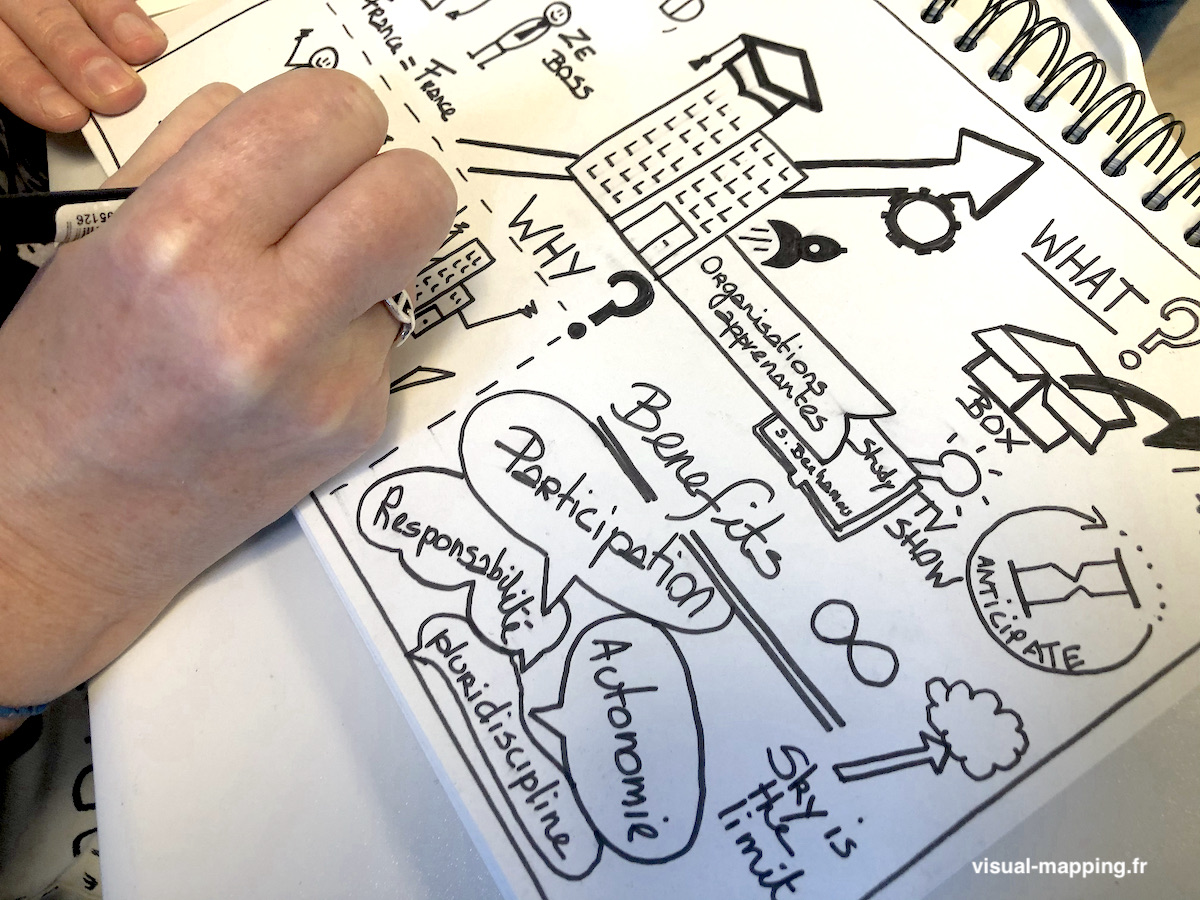 France = France
ZE
BOSS
D,
WHY
?
WHAT
?
Organisations
apprenantes
Study
BOX
TV
SHOW
ANTICIPATE
Benefits
Participation
Responsabilité
pluridiscipline
Autonomie
Sky is
the
limit
05126
visual-mapping.fr